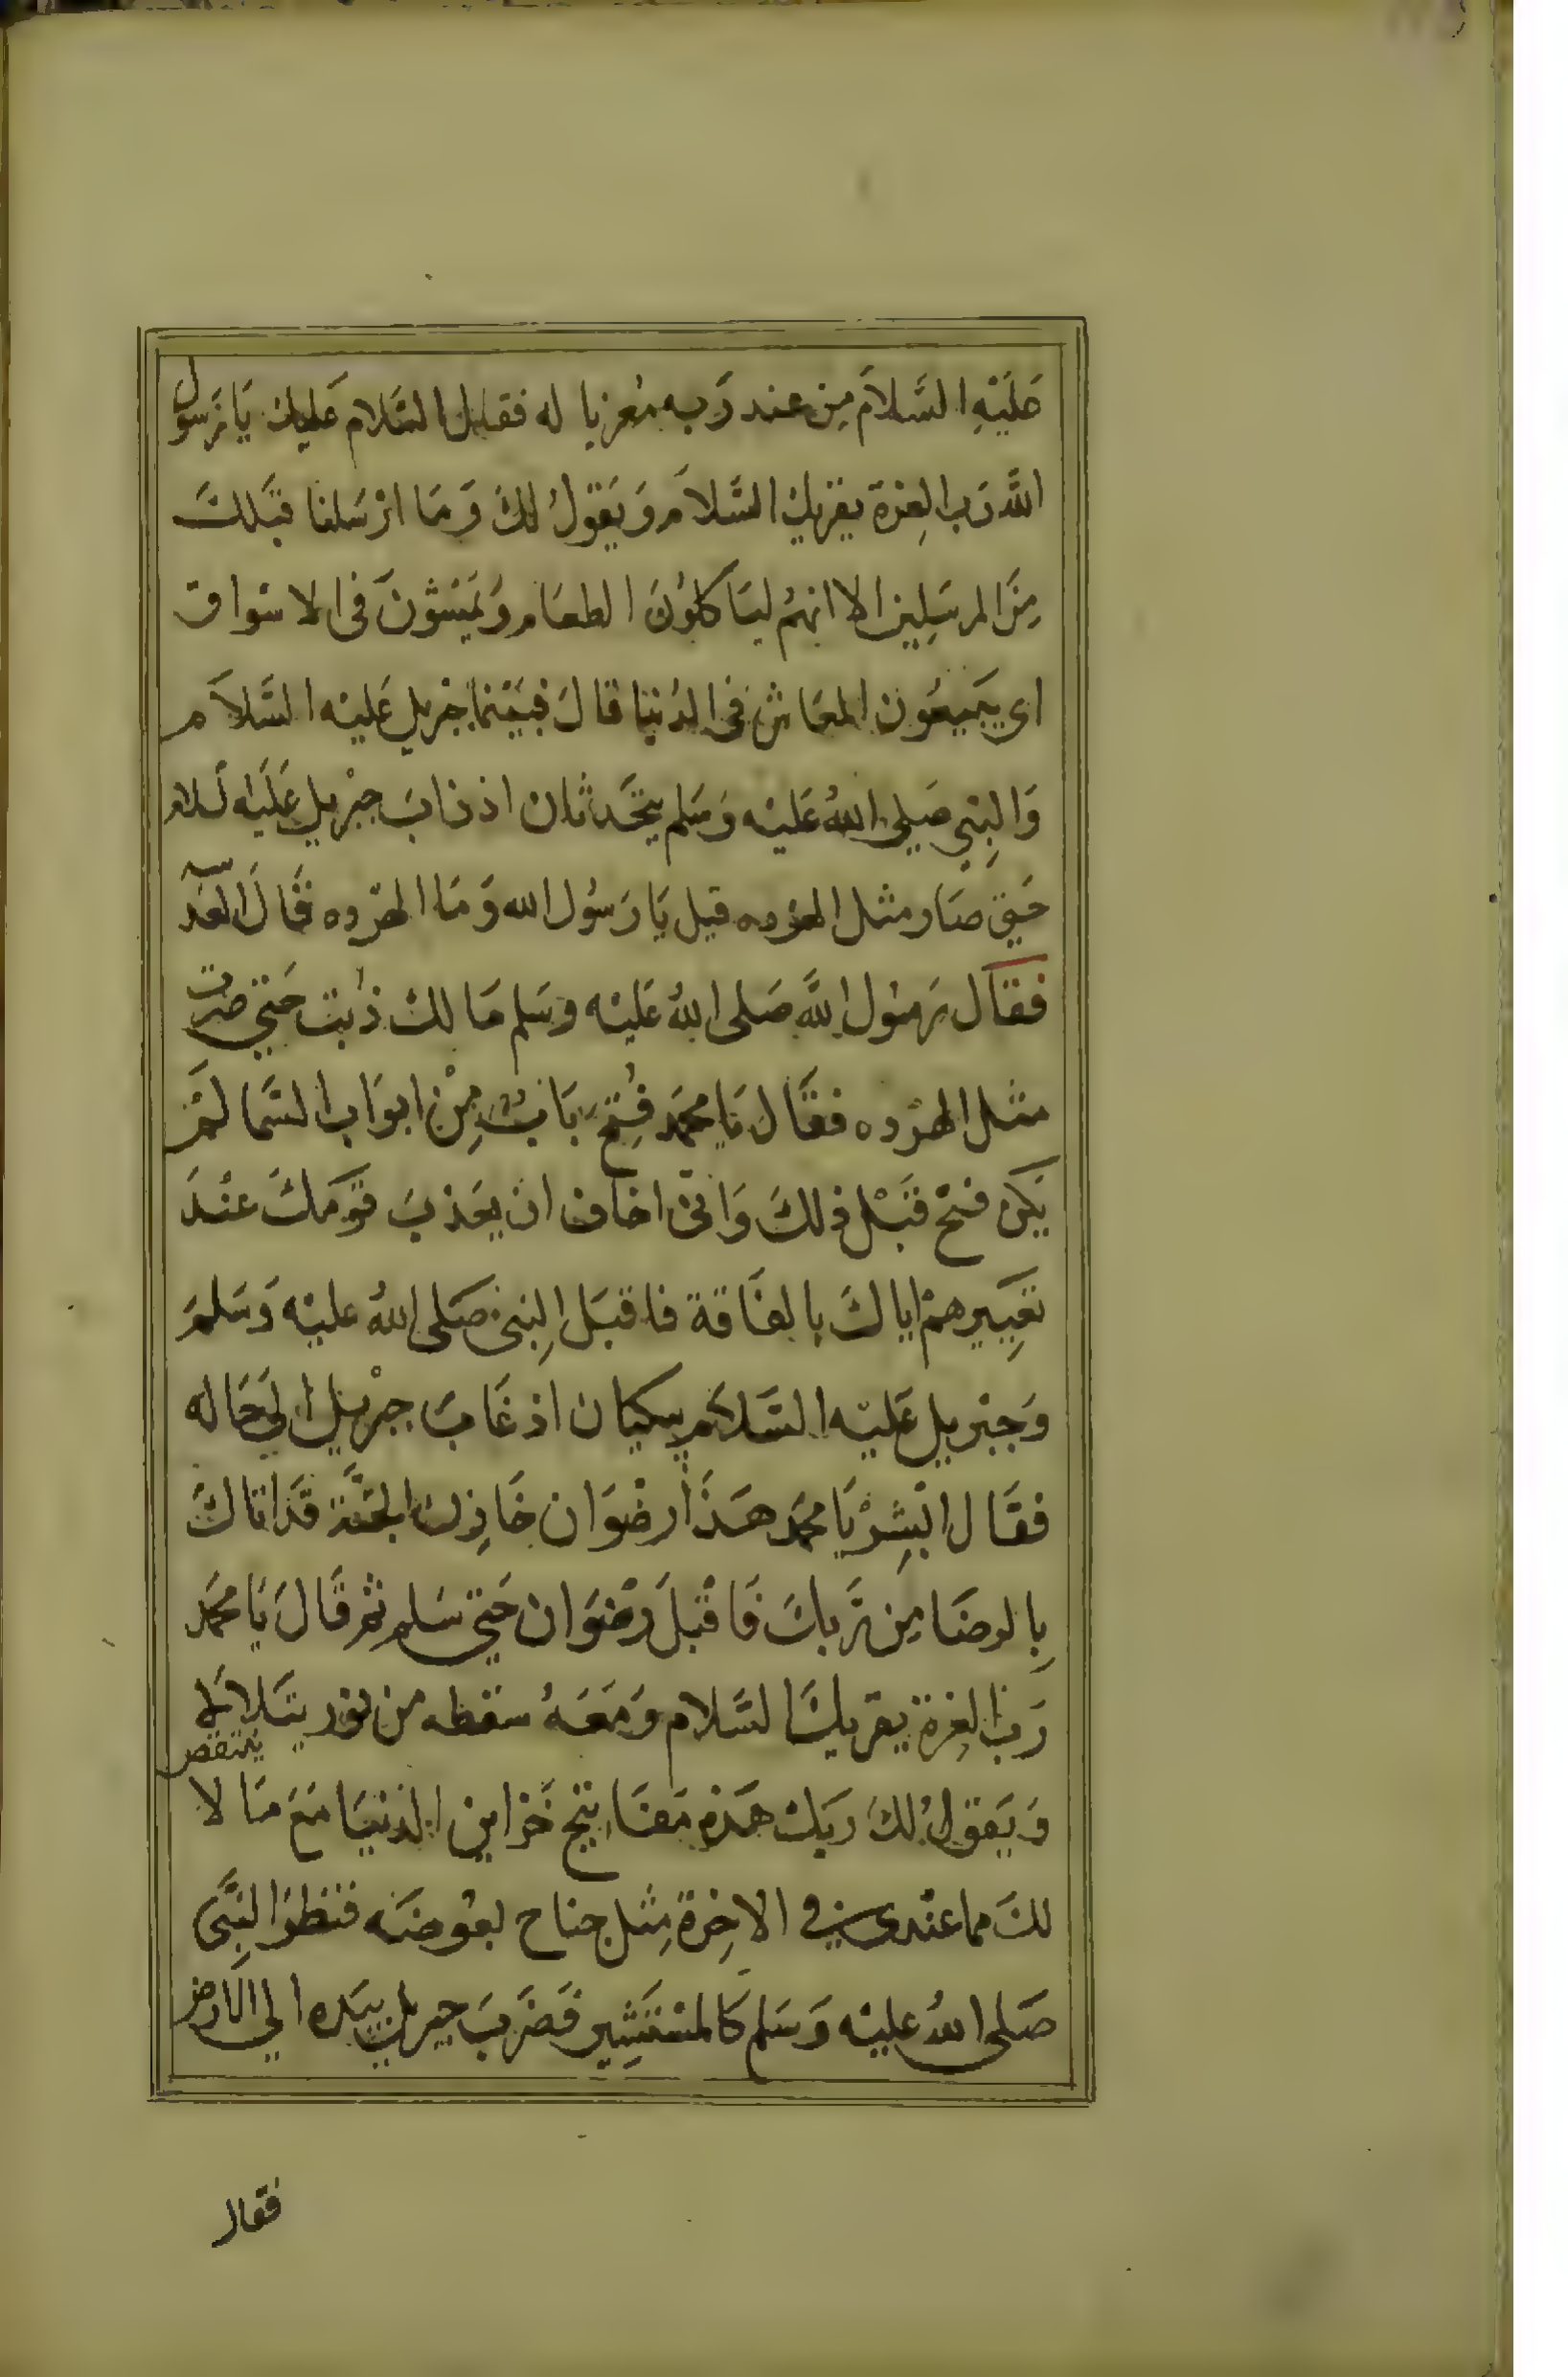 عَلَيْهِ السَّلَامَ مِن عند رَبه مُعزيا له فقال السَّلام عَليك يَا رَسول
اللَّه رَب العِزة يقريك السَّلاَم وَيَقولُ لكَ وَمَا ارْسَلنا قبَلكَ
مِنَ المرسَلِين الا انهُم ليَاكلوُنَ الطعَام وَيَمْشُونَ في الاسَواق
اي يَبْتغُون المعَاش في الدُنيا قالَ فبَيْنما جْبريل عَليْه السَّلاَم
وَالنِبي صَلى اللهُ عَليْه وَسَلم يتحَدثان اذ ذابَ جبْريل عَلَيْه لسَلام
حَتي صَار مثل الهرده قيل يَا رَسُول الله وَمَا الهرده قَالَ العَدسَه
فقَال رَسُول اللَّه صَلى اللهُ عَليْه وسَلم مَا لكَ ذبْت حَتي صرت
مثل الهرْده فقَال يَا محمَد فُتحَ بَابٌ مِنْ ابوَاب السَّما لَمْ
يَكن فتح قبْل ذلكَ وَاني اخاف ان يعَذبَ قوَمكَ عنْدَ
تعْيِيرهمْ اياكَ بالفَاقة فاقبَل النِبي صَلى اللهُ عليْه وَسَلمَ
وَجبْريل عَليْه السَّلاَم يبكيان اذ عَادَ جبْريل الي حَاله
فقَال ابْشِرْ يَا محمَد هَذَا رضْوَان خَازِن الجَنَّة قَد اتاكَ
بِالرضَا مِن رَبكَ فَاقْبلَ رضْوَان حَتي سَلم ثم قَالَ يَا محمَد
رَب العِزة يقريكَ السَّلام وَمَعَهُ سَفطه من نور يتَلالا
وَيَقولُ لكَ ربَك هَذه مَفاتيح خَزاين الدنيَا مَعَ مَا لا يَنتقص
لكَ مما عنْدي في الاخِرة مِثل جناح بعُوضَه فنظرَ النَبِّي
صَلى اللهُ عليْه وَسَلم كَالمسْتَشِير فَضَربَ جبريل بيَده الي الارض
فقال